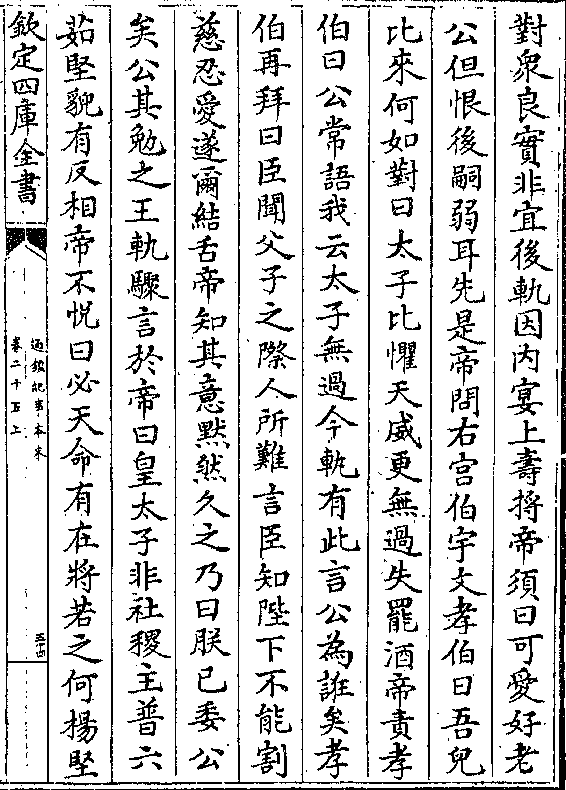 對衆良實非宜後軌因内宴上壽捋帝須曰可愛好老
公但恨後嗣弱耳先是帝問右宫伯宇文孝伯曰吾兒
比來何如對曰太子比懼天威更無過失罷酒帝責孝
伯曰公常語我云太子無過今軌有此言公為誑矣孝
伯再拜曰臣聞父子之際人所難言臣知陛下不能割
慈忍愛遂爾結舌帝知其意黙然久之乃曰朕已委公
矣公其勉之王軌驟言於帝曰皇太子非社稷主普六
茹堅貌有反相帝不悦曰必天命有在將若之何楊堅
欽定四庫全書
通鑑紀事本末
卷二十五上
五十四